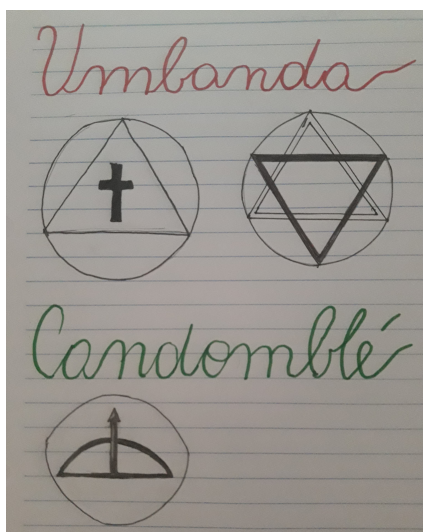 Umbanda
Candomblé